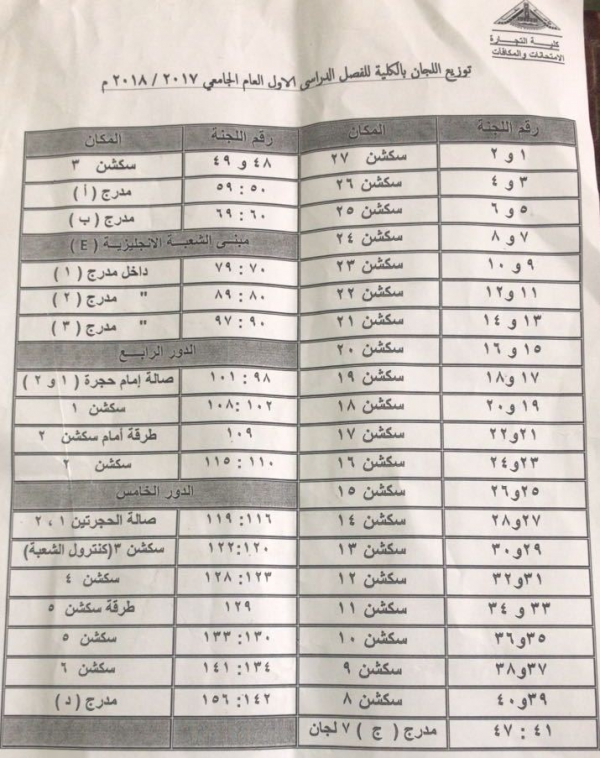 كلية التجارة
الامتحانات والمكافات
توزيع اللجان بالكلية للفصل الدراسى الاول العام الجامعي ٢٠١٧ / ٢٠١٨ م
رقم اللجنة المكان
١ و ٢ سكشن ٢٧
٣ و ٤ سكشن ٢٦
٥ و ٦ سكشن ٢٥
٧ و ٨ سكشن ٢٤
٩ و ١٠ سكشن ٢٣
١١ و ١٢ سكشن ٢٢
١٣ و ١٤ سكشن ٢١
١٥ و ١٦ سكشن ٢٠
١٧ و١٨ سكشن ١٩
١٩ و٢٠ سكشن ١٨
٢١و٢٢ سكشن ١٧
٢٣و٢٤ سكشن ١٦
٢٥و٢٦ سكشن ١٥
٢٧و٢٨ سكشن ١٤
٢٩و٣٠ سكشن ١٣
٣١و٣٢ سكشن ١٢
٣٣ و ٣٤ سكشن ١١
٣٥و٣٦ سكشن ١٠
٣٧و٣٨ سكشن ٩
٣٩و٤٠ سكشن ٨
٤١ : ٤٧ مدرج ( ج ) ٧ لجان
رقم اللجنة المكان
٤٨ و ٤٩ سكشن ٣
٥٠ : ٥٩ مدرج ( أ )
٦٠ : ٦٩ مدرج ( ب )
مبنى الشعبة الانجليزية ( E )
٧٠ : ٧٩ داخل مدرج ( ١ )
٨٠ : ٨٩ " مدرج ( ٢ )
٩٠ : ٩٧ " مدرج ( ٣ )
الدور الرابع
٩٨ : ١٠١ صالة إمام حجرة ( ١ و ٢ )
١٠٢ :١٠٨ سكشن ١
١٠٩ طرقة أمام سكشن ٢
١١٠: ١١٥ سكشن ٢
الدور الخامس
١١٦: ١١٩ صالة الحجرتين ١ ، ٢
١٢٠:١٢٢ سكشن ٣(كنترول الشعبة)
١٢٣: ١٢٨ سكشن ٤
١٢٩ طرقة سكشن ٥
١٣٠: ١٣٣ سكشن ٥
١٣٤: ١٤١ سكشن ٦
١٤٢: ١٥٦ مدرج ( د )